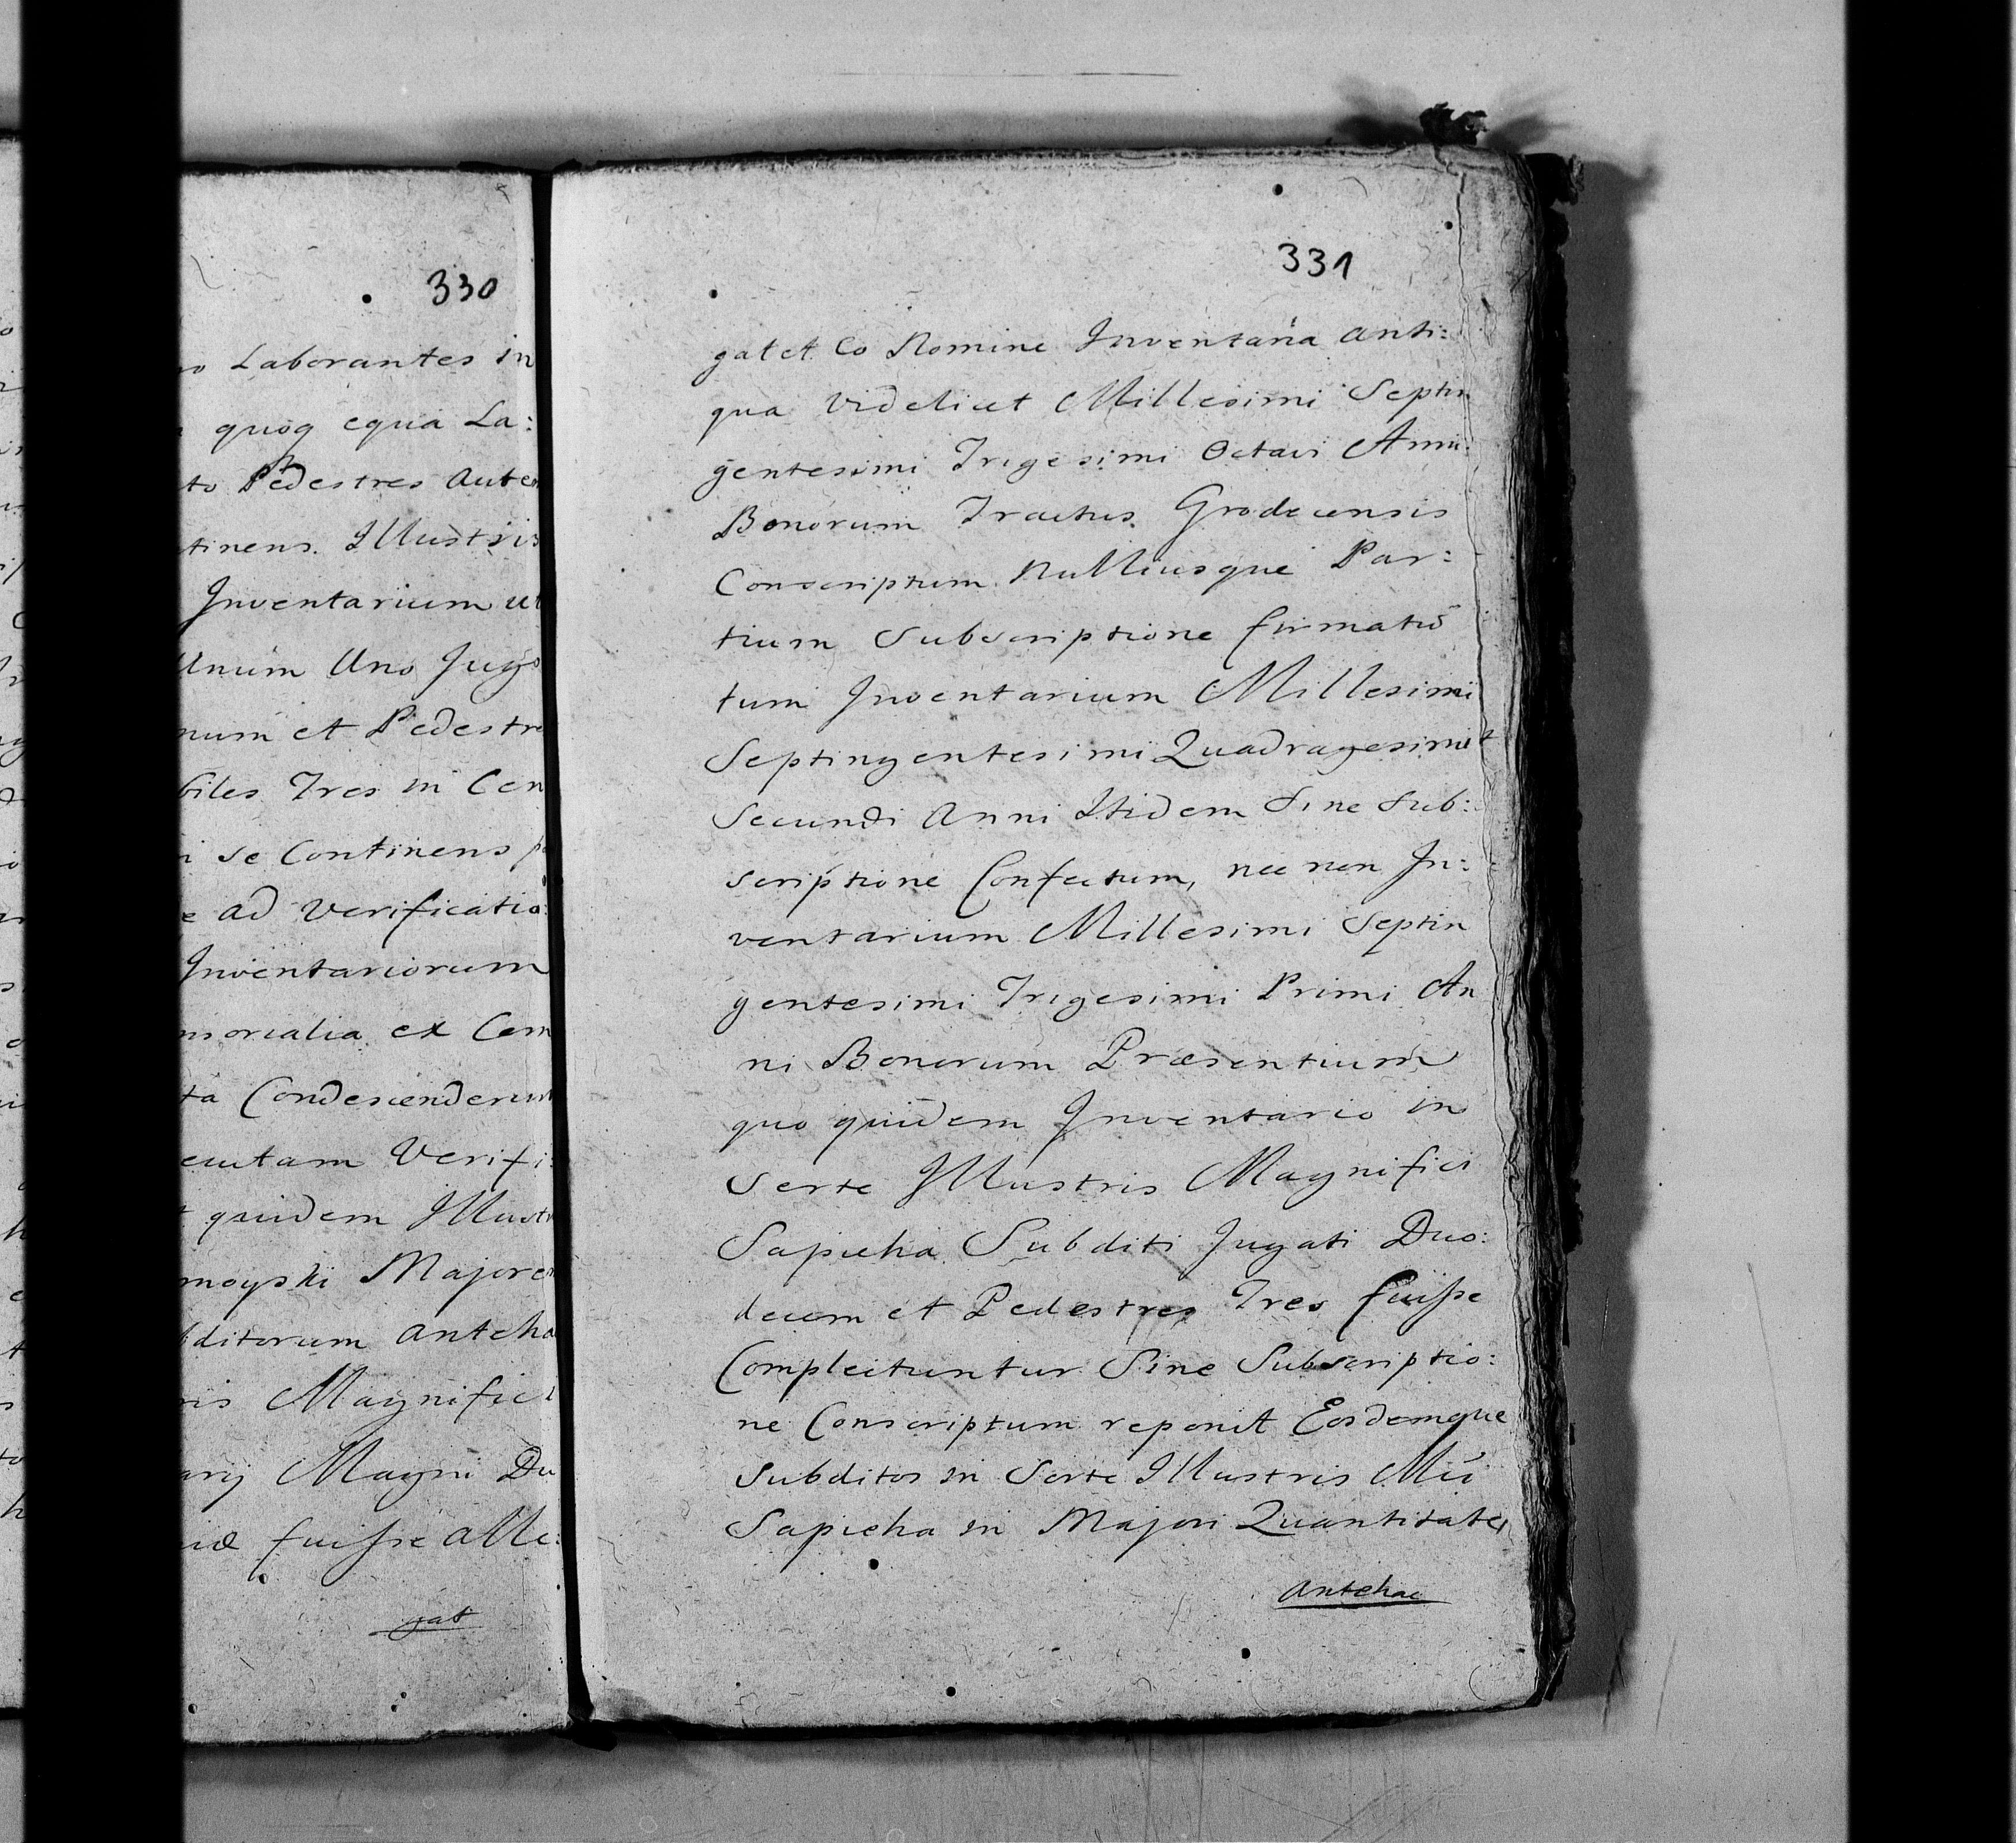 330
Laborantes in
quoq equia La:
to Pedestres Autem
tinens. Illustris
Inventarium ut
Unum Uno Jugo
num et Pedestre
biles Tres in Cen
i se Continens
ad Verificatio:
Inventariorum
morialia ex Cam
ta Condescenderunt
cutam Verifi:
quidem Illust
moyski Majorem
bditorum anteha
ris Magnifici
arij Magni Du
fuisse alle:
gat
331
gat et Eo Nomine Inventaria Anti:
qua Videlicet Millesimi Septin
gentesimi Trigesimi Octavi Anni
Bonorum Tractus Grodecensis
Conscriptum Nulliusque Par:
tium Subscriptione firmatū
tum Inventarium Millesimi
Septingentesimi Quadragesimi
Secundi Anni Itidem Sine Sub:
scriptione Confectum, nec non In:
ventarium Millesimi Septin
gentesimi Trigesimi Primi An
ni Bonorum Præsentium
quo quidem Inventario in
Sorte Illustris Magnifici
Sapieha Subditi Jugati Duo:
decem et Pedestres Tres fuisse
Complectuntur Sine Subscriptio:
ne Conscriptum reponit Eosdemque
Subditos in Sorte Illustris Mci
Sapieha in Majori Quantitate
Antehac